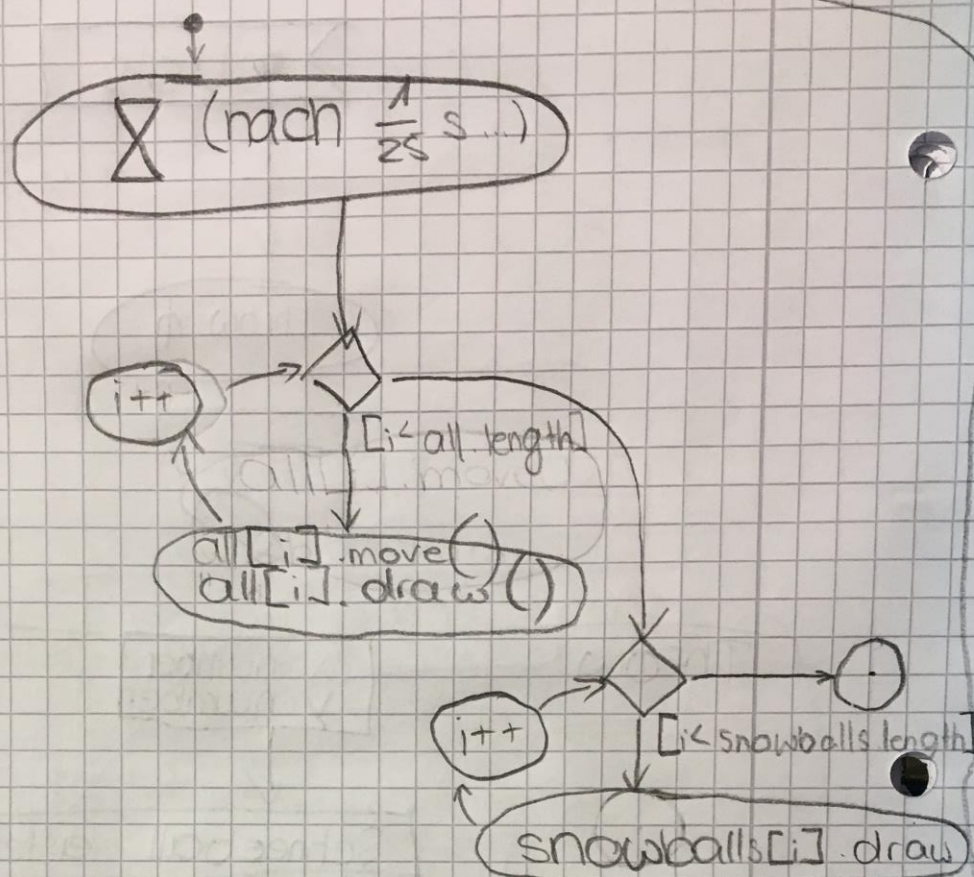 (nach 1/25 s...)
i++
[i< all.length]
all[i].move()
all[i].draw()
i++
[i< snowballs.length]
snowballs[i].draw